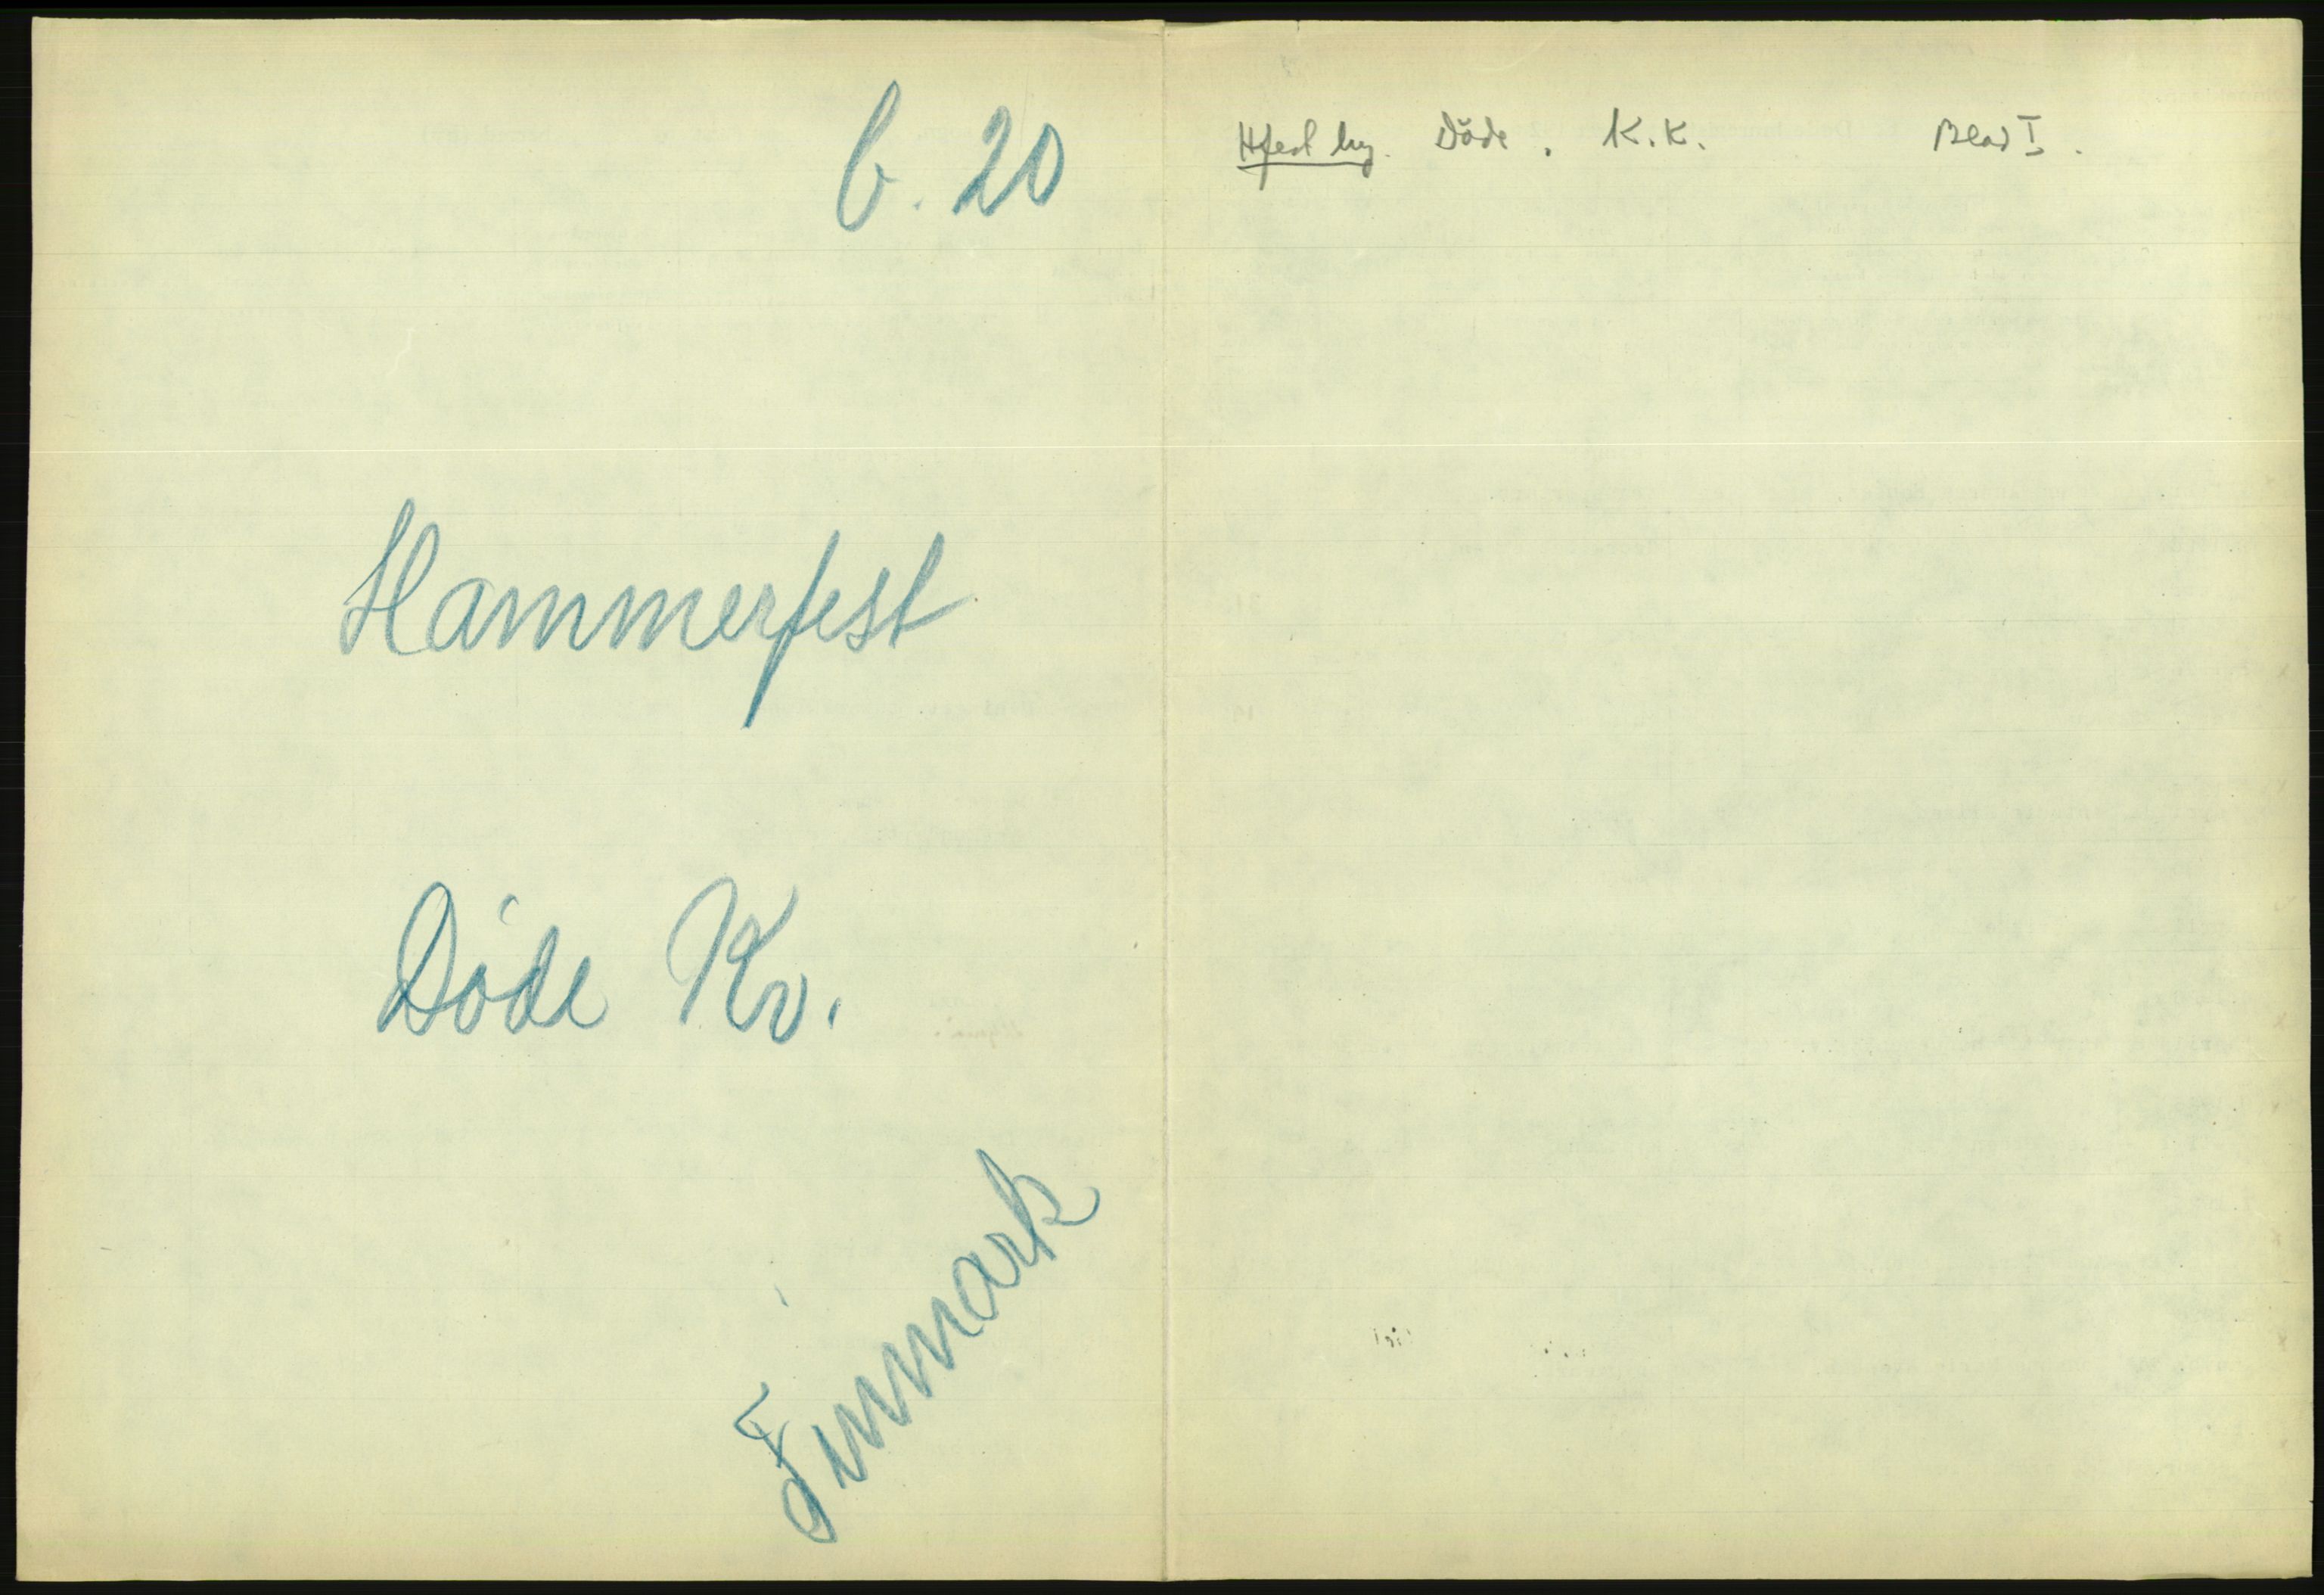 b. 20
Hammerfest
Döde Kv.
Finmark
Hfest by. Döde. K.K. Blad I.